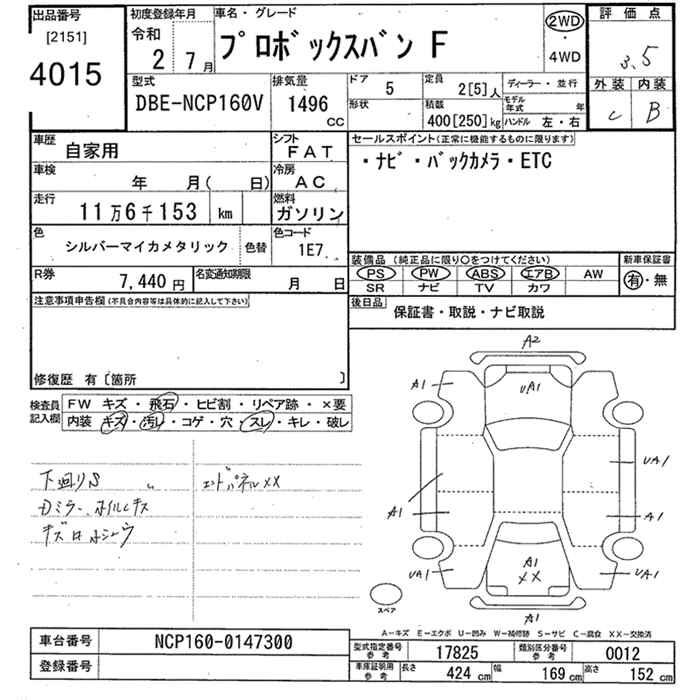 出品番号
[2151]
4015
初度登録年月
令和
2 7月
車名・グレード
プロボックスバン F
2WD
・
4WD
評価点
3.5
外装 内装
C B
型式
DBE-NCP160V
排気量
1496
CC
ドア
5
形状
定員
2[5]人
積載
400[250]kg
ディーラー・並行
モデル年式 年
ハンドル 左・右
車歴
自家用
シフト
FAT
車検
年 月( 日)
冷房
AC
走行
11万6千153 km
燃料
ガソリン
色
シルバーマイカメタリック
色替
色コード
1E7
R券
7,440円
名変通知期限
月 日
セールスポイント(正常に機能するものに限ります)
・ナビ・バックカメラ・ETC
装備品 (純正品に限り〇をつけてください)
PS PW ABS エアB AW
SR ナビ TV カワ
新車保証書
有・無
後日品
保証書・取説・ナビ取説
注意事項申告欄(不具合内容等は具体的に記入して下さい)
修復歴 有〔箇所 〕
検査員記入欄
FW キズ・飛石・ヒビ割・リペア跡・×要
内装 キズ・汚レ・コゲ・穴・スレ・キレ・破レ
下廻りS
エンドパネルXX
Dミラー、ホイルキズ
A2
A1
UA1
UA1
A1
A1
A1
XX
UA1
UA1
A1
スペア
A-キズ E-エクボ U-凹み W-補修跡 S-サビ C-腐食 XX-交換済
車台番号
NCP160-0147300
登録番号
型式指定番号
参考
17825
類別区分番号
参考
0012
車庫証明用
参考
長さ
424 cm
幅
169 cm
高さ
152 cm